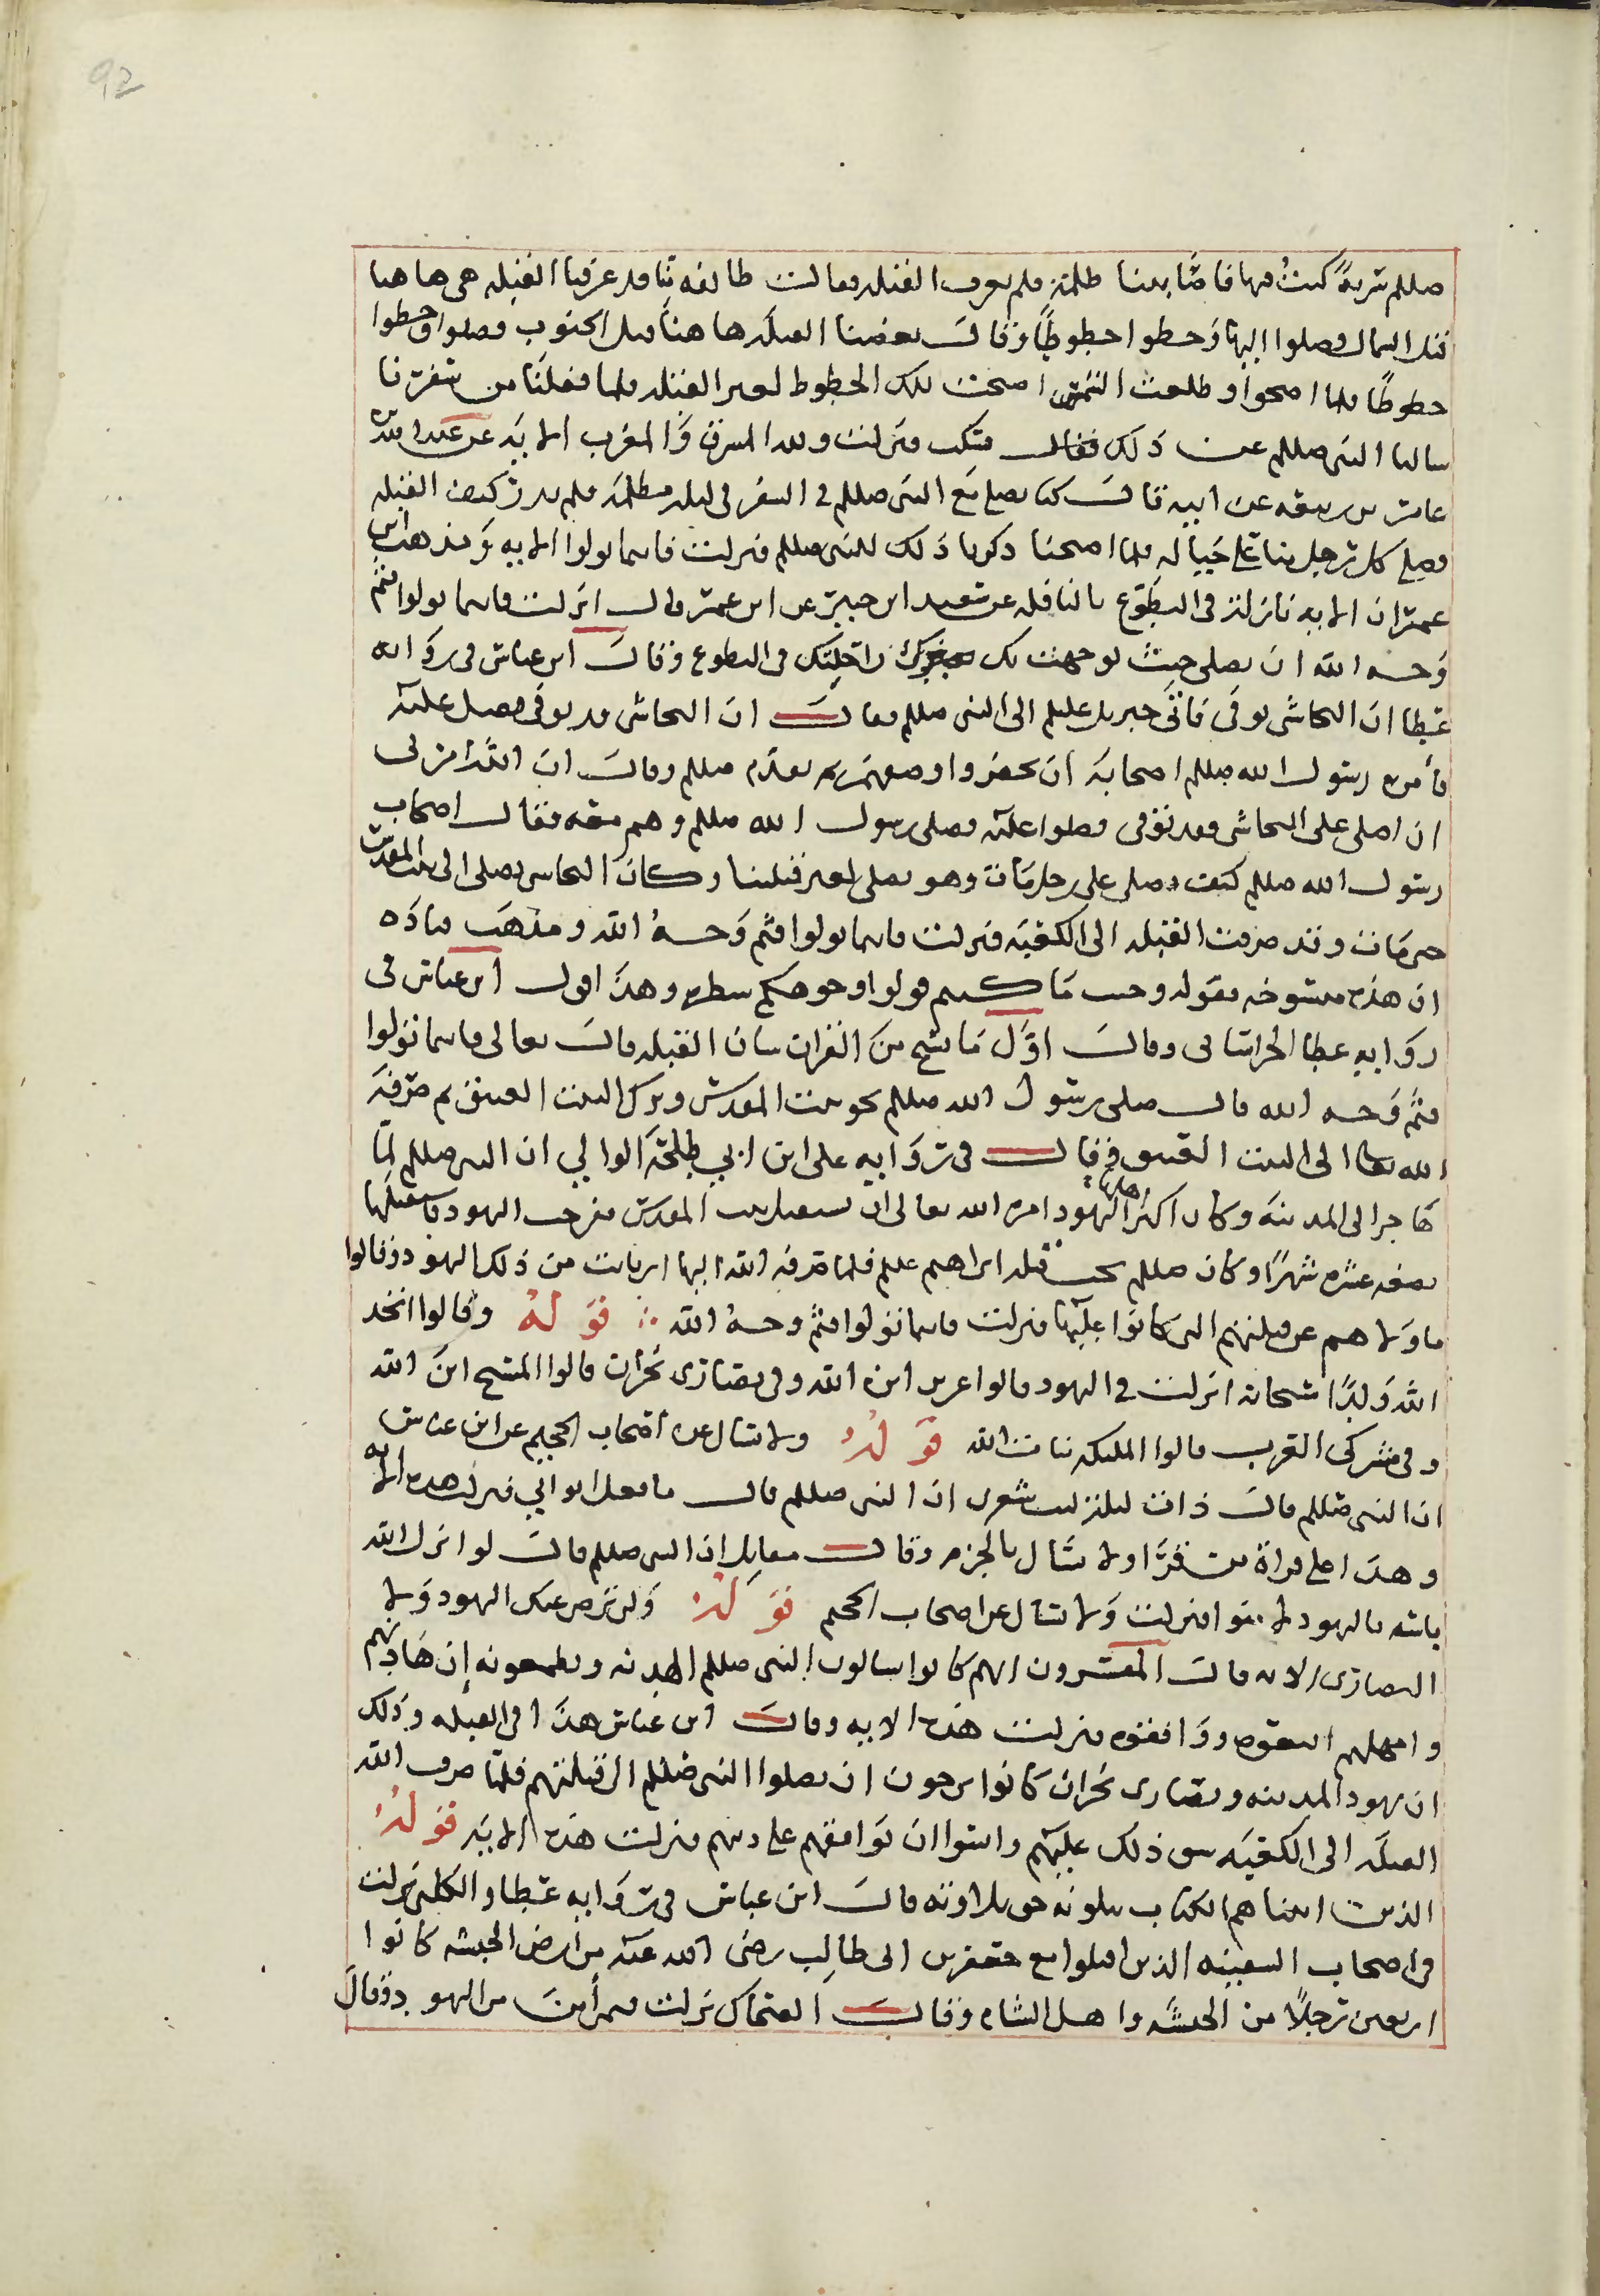 92
صللم سرية كنت فيها فاصابتنا ظلمة فلم نعرف القبله فقالت طائفه منا قد عرفنا القبله هي هاهنا
قبل الشمال وصلوا اليها وخطوا خطوطا وقال بعضنا القبله هاهنا قبل الجنوب فصلوا وخطوا
خطوطا فلما اصبحوا وطلعت الشمس اصبحت تلك الخطوط لغير القبله فلما قفلنا من سفرنا
سالنا النبي صللم عن ذلك فسكت فنزلت ولله المشرق والمغرب الايه عن عبد الله بن
عامر بن ربيعه عن ابيه قال كنا نصلي مع النبي صللم في السفر في ليله مظلمه فلم ندر كيف القبله
فصلى كل رجل منا على حياله فلما اصبحنا ذكرنا ذلك للنبي صللم فنزلت فاينما تولوا الايه ومذهب ابن
عمر ان الايه نازلة في التطوع بالنافله عن سعيد ابن جبير عن ابن عمر قال انزلت فاينما تولوا فثم
وجه الله ان تصلي حيث توجهت بك راحلتك في التطوع وقال ابن عباس في روايه
عطا ان النجاشي توفي فاتى جبريل عليلم الى النبي صللم فقال ان النجاشي قد توفي فصل عليه
فامر رسول الله صللم اصحابه ان يحضروا وصفهم ثم تقدم صللم وقال ان الله امرني
ان اصلي على النجاشي وقد توفي فصلوا عليه فصلى رسول الله صللم وهم معه فقال اصحاب
رسول الله صللم كيف نصلي على رجل مات وهو يصلي لغير قبلتنا وكان النجاشي يصلي الى بيت المقدس
حتى مات وقد صرفت القبله الى الكعبه فنزلت فاينما تولوا فثم وجه الله ومذهب قتاده
ان هذه منسوخه بقوله وحيث ما كنتم فولوا وجوهكم شطره وهذا قول ابن عباس في
روايه عطا الخراساني وقال اول ما نسخ من القران شان القبله قال تعالى فاينما تولوا
فثم وجه الله قال صلى رسول الله صللم نحو بيت المقدس وترك البيت العتيق ثم صرفه
الله تعالى الى البيت العتيق وقال في روايه علي ابن ابي طلحه الوالبي ان النبي صللم لما
هاجر الى المدينه وكان اكثر اهلها اليهود امره الله تعالى ان يستقبل بيت المقدس ففرحت اليهود فاستقبلها
بضعه عشر شهرا وكان صللم يحب قبله ابراهيم علم فلما صرفه الله اليها ارتابت من ذلك اليهود وقالوا
ما ولاهم عن قبلتهم التي كانوا عليها فنزلت فاينما تولوا فثم وجه الله ∴ قوله وقالوا اتخذ
الله ولدا سبحانه انزلت في اليهود قالوا عزير ابن الله وفي نصارى نجران قالوا المسيح ابن الله
وفي مشركي العرب قالوا الملايكه بنات الله قوله ولا تسال عن اصحاب الجحيم عن ابن عباس
ان النبي صللم قال ذات ليله ليت شعري ان النبي صللم قال ما فعل ابواي فنزلت هذه الايه
وهذا على قراة من قرا ولا تسال بالجزم وقال مقاتل ان النبي صللم قال لو انزل الله
باسه باليهود لامنوا فنزلت ولا تسال عن اصحاب الجحيم قوله ولن ترضى عنك اليهود ولا
النصارى الايه قال المفسرون انهم كانوا يسالون النبي صللم الهدنه ويطمعونه ان هادنهم
وامهلهم اتبعوه ووافقوه فنزلت هذه الايه وقال ابن عباس هذا في القبله وذلك
ان يهود المدينه ونصارى نجران كانوا يرجون ان يصلوا النبي صللم الى قبلتهم فلما صرف الله
القبله الى الكعبه شق ذلك عليهم وايسوا ان يوافقهم على دينهم فنزلت هذه الايه قوله
الذين اتيناهم الكتاب يتلونه حق تلاوته قال ابن عباس في روايه عطا والكلبي نزلت
في اصحاب السفينه الذين اقبلوا مع جعفر بن ابي طالب رضي الله عنه من ارض الحبشه كانوا
اربعين رجلا من الحبشه واهل الشام وقال الضحاك نزلت فيمن امن من اليهود وقال